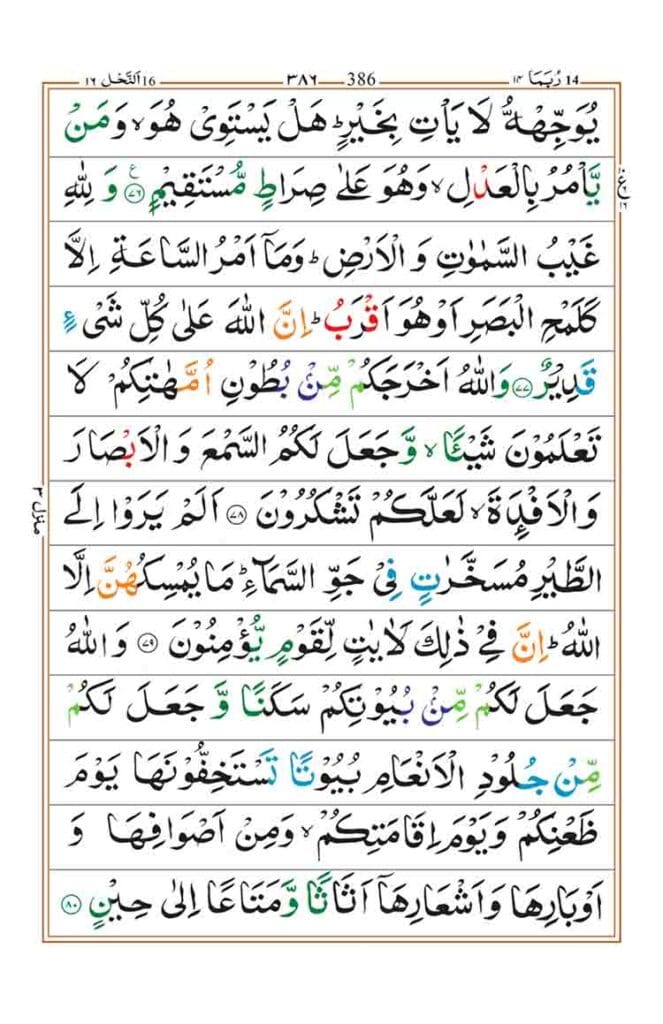 14 رُبَمَا ١٤
386 ٣٨٦
16 اَلنَّحْل ١٦
يُوَجِّهْهُّ لَا يَاْتِ بِخَيْرٍؕ هَلْ يَسْتَوِىْ هُوَ ۙ وَمَنْ
يَّاْمُرُ بِالْعَدْلِ ۙ وَهُوَ عَلٰى صِرَاطٍ مُّسْتَقِيْمٍ ۧ ﴿٧٦﴾ وَ لِلّٰهِ
غَيْبُ السَّمٰوٰتِ وَ الْاَرْضِ ؕ وَمَاۤ اَمْرُ السَّاعَةِ اِلَّا
كَلَمْحِ الْبَصَرِ اَوْ هُوَ اَقْرَبُ ؕ اِنَّ اللّٰهَ عَلٰى كُلِّ شَىْءٍ
قَدِيْرٌ ﴿٧٧﴾ وَاللّٰهُ اَخْرَجَكُمْ مِّنْۢ بُطُوْنِ اُمَّهٰتِكُمْ لَا
تَعْلَمُوْنَ شَيْئًا ۙ وَّ جَعَلَ لَكُمُ السَّمْعَ وَ الْاَبْصَارَ
وَ الْاَفْـِٕدَةَ ۙ لَعَلَّكُمْ تَشْكُرُوْنَ ﴿٧٨﴾ اَلَمْ يَرَوْا اِلَى
الطَّيْرِ مُسَخَّرٰتٍ فِىْ جَوِّ السَّمَآءِ ؕ مَا يُمْسِكُهُنَّ اِلَّا
اللّٰهُ ؕ اِنَّ فِىْ ذٰلِكَ لَاٰيٰتٍ لِّقَوْمٍ يُّؤْمِنُوْنَ ﴿٧٩﴾ وَ اللّٰهُ
جَعَلَ لَكُمْ مِّنْۢ بُيُوْتِكُمْ سَكَنًا وَّ جَعَلَ لَكُمْ
مِّنْ جُلُوْدِ الْاَنْعَامِ بُيُوْتًا تَسْتَخِفُّوْنَهَا يَوْمَ
ظَعْنِكُمْ وَ يَوْمَ اِقَامَتِكُمْ ۙ وَمِنْ اَصْوَافِهَا وَ
اَوْبَارِهَا وَ اَشْعَارِهَاۤ اَثَاثًا وَّ مَتَاعًا اِلٰى حِيْنٍ ﴿٨٠﴾
منزل ٣